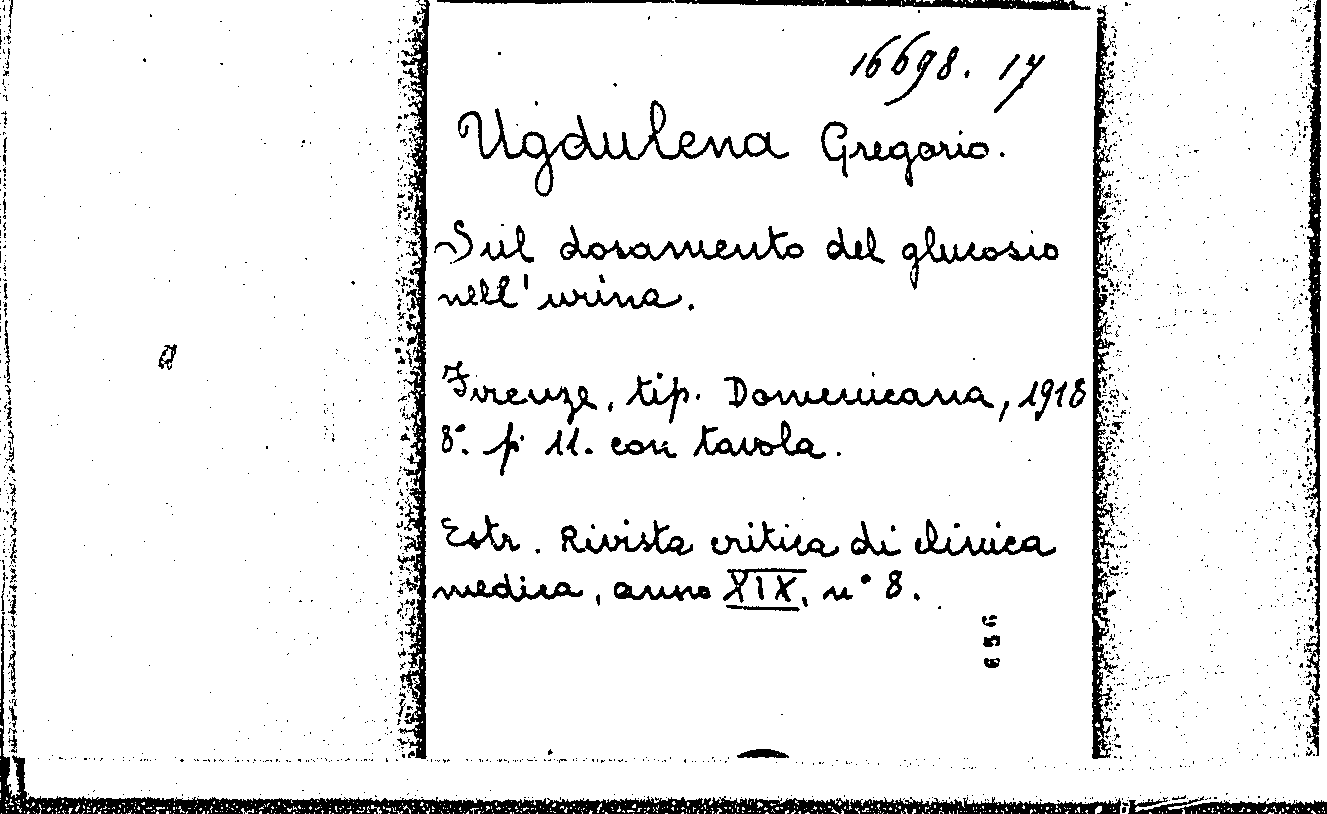 16698. 17
Ugdulena Gregorio.
Sul dosamento del glucosio
nell'urina.
Firenze, tip. Domenicana, 1918
8°. p 11. con tavola.
Estr. Rivista critica di clinica
medica, anno XIX, n° 8.
656